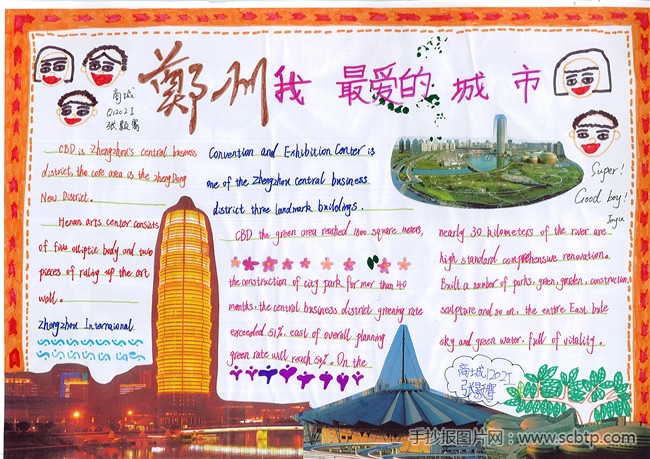 鄭州我最爱的城市
商城
Q1202I
CBD is Zhengzhou's central business
district, the core area is the zhengDong
New District.
Henan arts center consists
of five elliptic body and two
pieces of raling up the art
wall.
Zhengzhou International
Convention and Exhibition Conter is
one of the zhengzhou central business
district three landmark buildings.
CBD the green area reached 1800 square meters,
the construction of city park for more than 40
months, the central business district greening rate
exceeded 51%, east of overall planning
green rate will reach 50%. On the
nearly 30 kilometers of the river are
high standard comprehensive renovation.
Built a number of parks, green, garden, construction,
sculpture and so on, the entire East blue
sky and green water, full of vitality.
Super!
Good boy!
商城1202I
手抄报图片网:www.scbtp.com